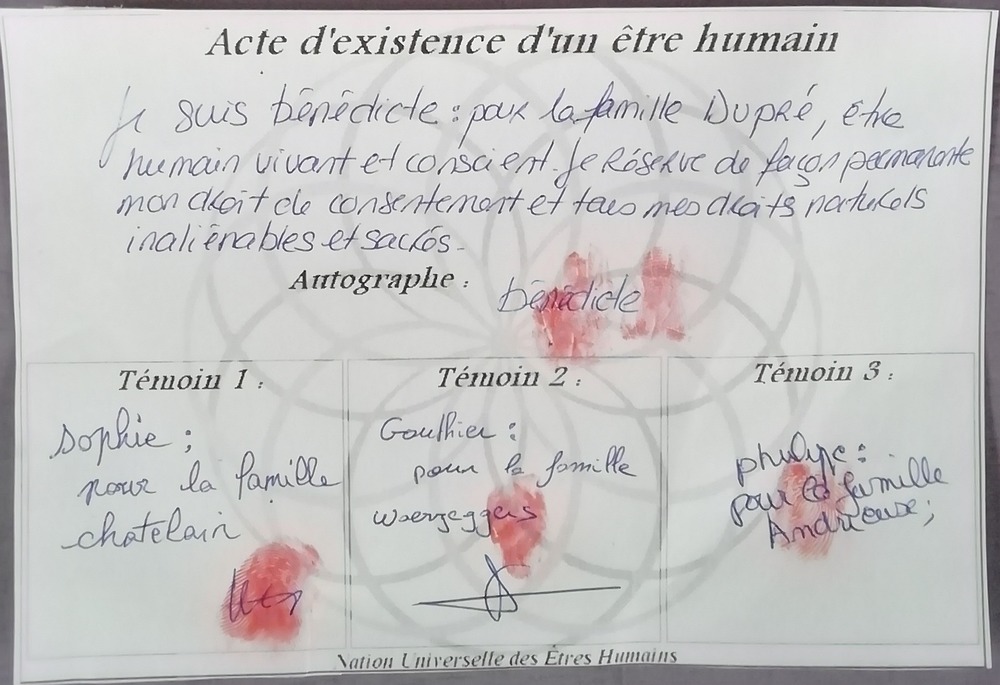 Acte d'existence d'un être humain
Je suis bénédicte : pour la famille Dupré, être
humain vivant et conscient. Je Réserve de façon permanente
mon droit de consentement et tous mes droits naturels
inaliénables et sacrés.
Autographe : bénédicte
Témoin 1 :
sophie ;
pour la famille
chatelain
Témoin 2 :
Gauthier :
pour la famille
Témoin 3 :
pour la famille
Andrieuse ;
Nation Universelle des Êtres Humains